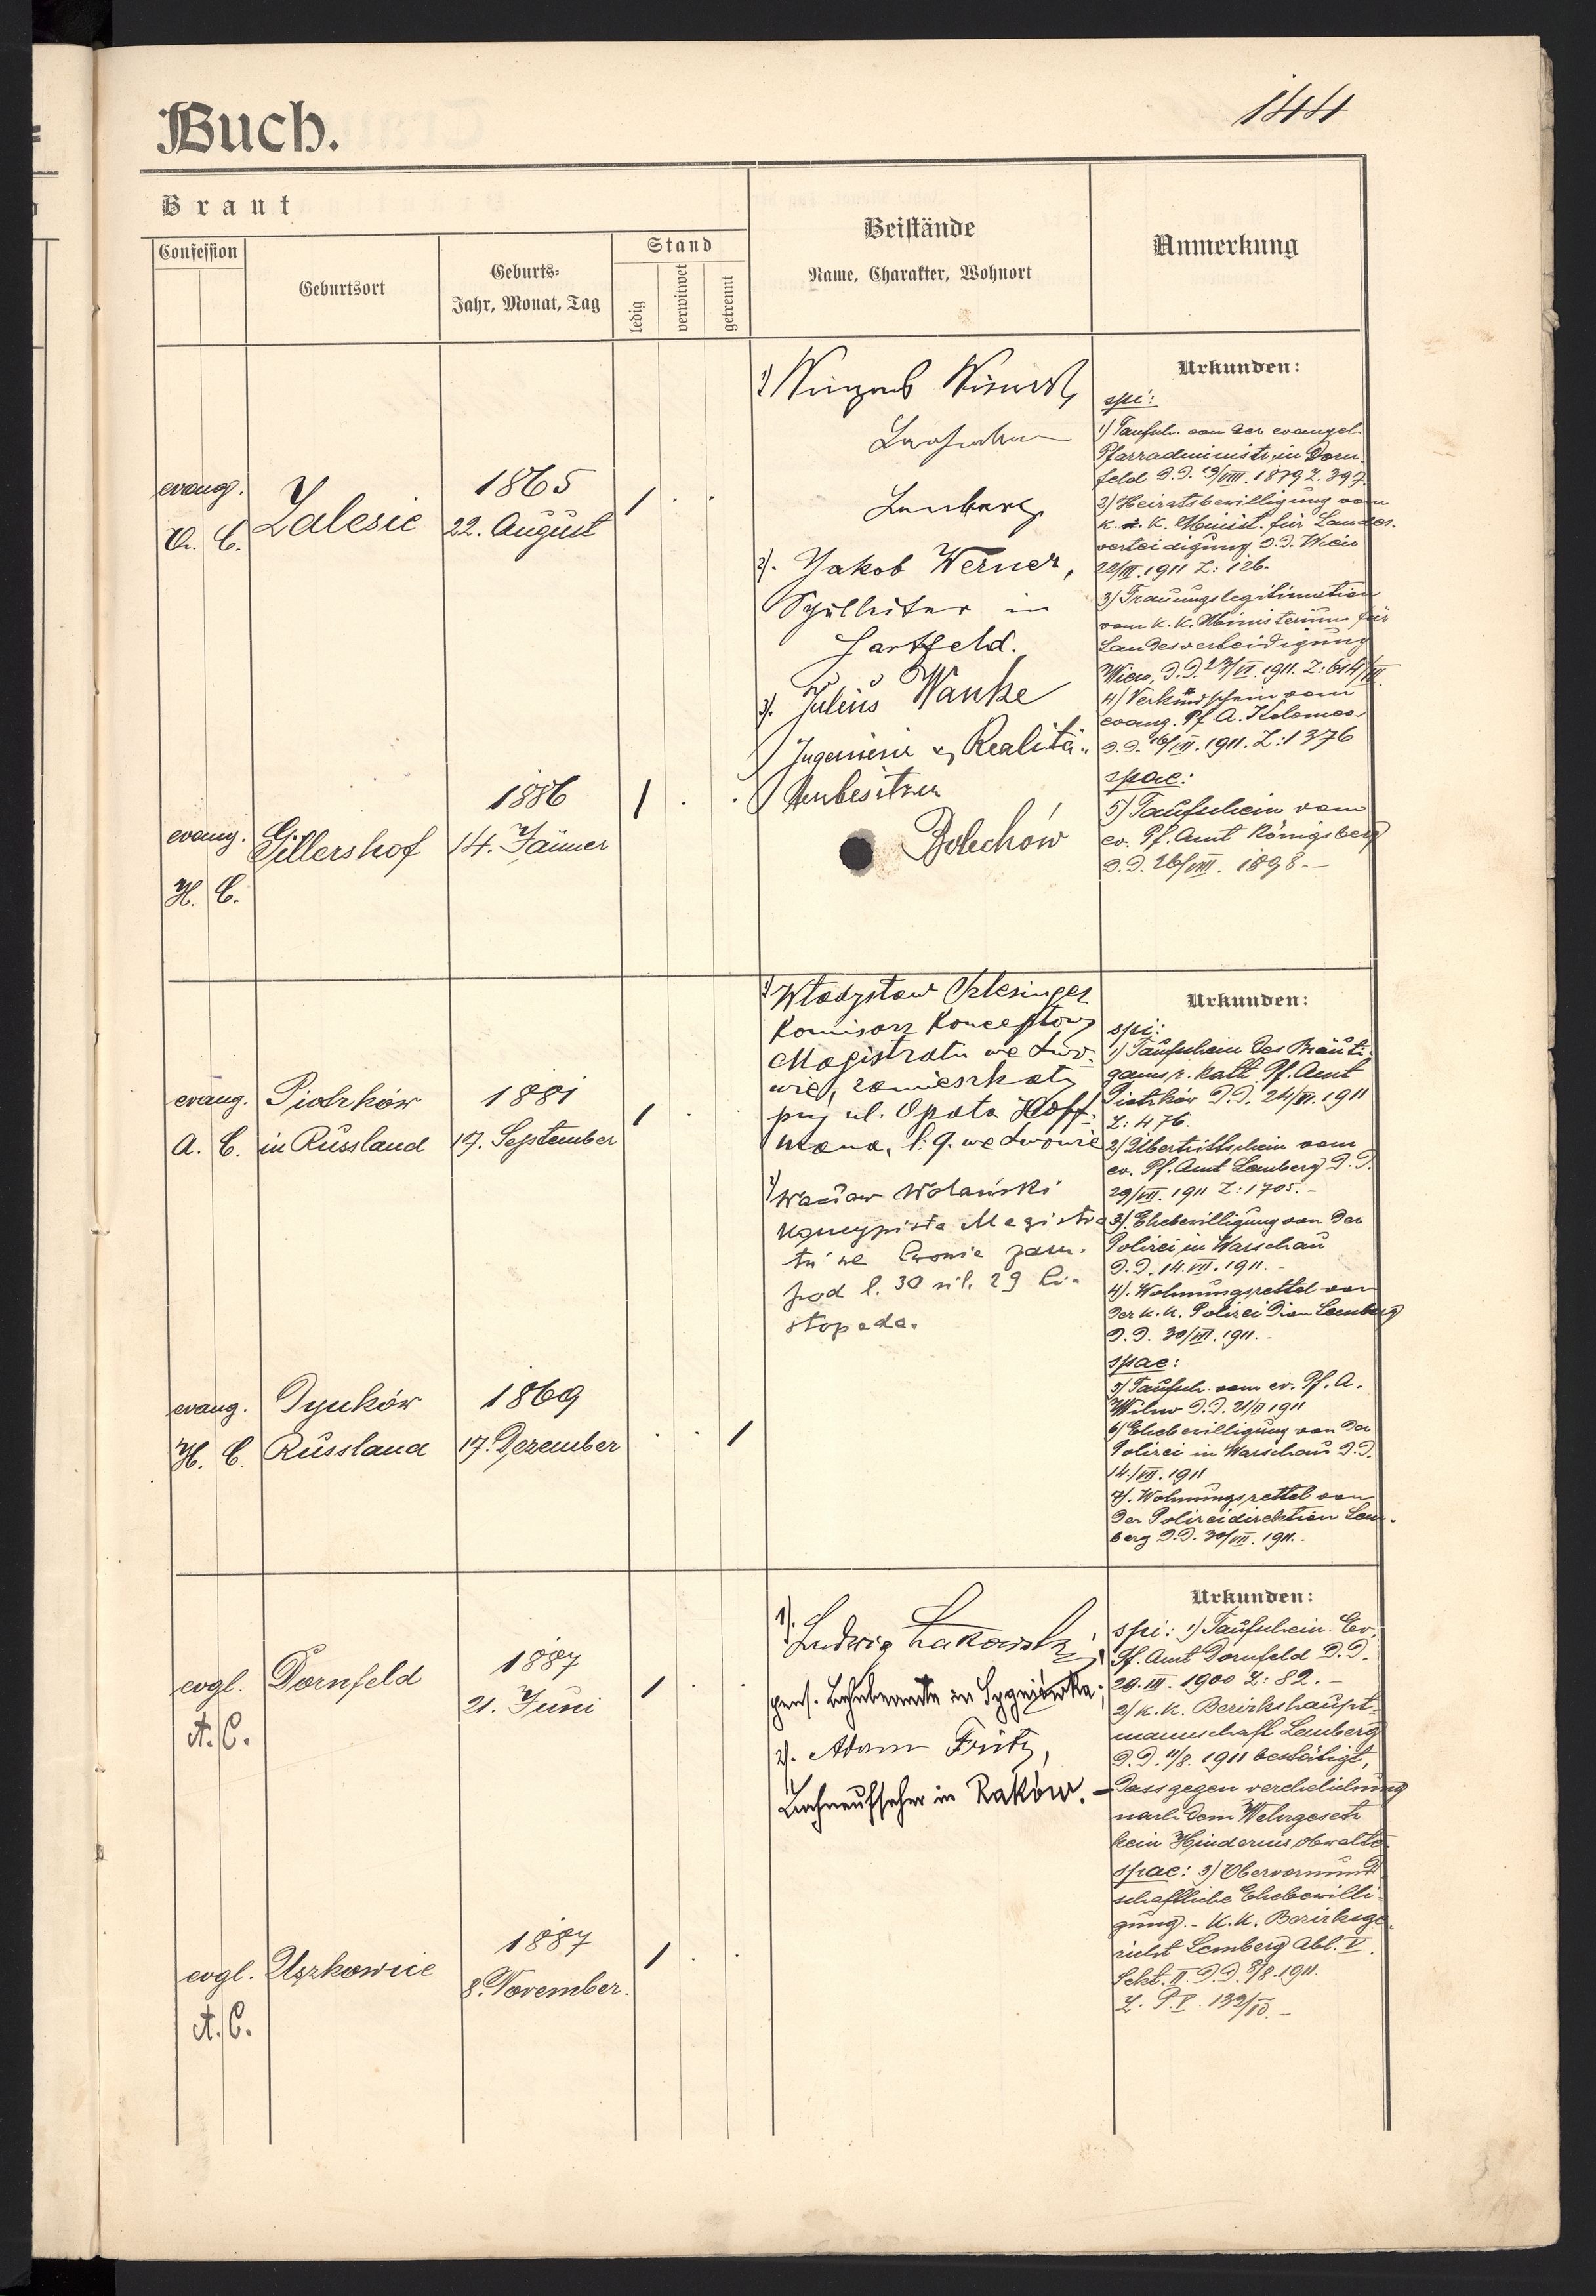 144
Buch.
Braut
Confession
Geburtsort
Geburts-
Jahr, Monat, Tag
Stand
ledig
verwitwet
getrennt
Beistände
Name, Charakter, Wohnort
Anmerkung
evang.
A. C.
Zalesie
1865
22. August
1886
14. Jänner
evang.
Gillershof
H. C.
1)
Lemberg
2). Jakob Werner,
in
Hartfeld.
3). Julius Wanke
Ingenieur & Realitä-
tenbesitzer
Bolechów
Urkunden:
spi:
1) Taufsch. von der evangel.
Pfarradministr. in Dorn-
feld d.d. 19/VIII. 1879 Z. 397
2) Heiratsbewilligung vom
K. K. Minist. für Landes-
verteidigung d.d. Wien
22/III. 1911 Z: 126.
3) Trauungslegitimation
vom K. K. Ministerium für
Landesverteidigung
Wien, d.d. 23/VI. 1911. Z: 614/III
4) Verkündschein vom
evang. Pf. A. Kolomea
d.d. 16/VII. 1911. Z: 1376
spae:
5) Taufschein vom
ev. Pf. Amt Königsberg
d.d. 26/VIII. 1898.-
evang.
A. C.
Piotrków
in Russland
1881
17. September
evang.
H. C.
Russland
1869
17. Dezember
1) Władysław Szlesinger
Komisarz Konceptowy
Magistratu we Lwo-
wie, zamieszkały
przy ul. Opata Hoff-
mana, l. 9. we Lwowie
2) Wacław Wolański
koncypista Magistra
tu we Lwowie zam.
pod l. 30 ul. 29 Li-
stopada.
Urkunden:
spi:
1) Taufschein des Bräuti-
gams r. kath. Pf. Amt
Piotrków d.d. 24/VI. 1911
Z: 476.
2) Übertrittschein vom
ev. Pf. Amt Lemberg d.d.
29/VII. 1911 Z: 1705.-
3). Ehebewilligung von der
Polizei in Warschau
d.d. 14. VII. 1911.-
4). Wohnungszettel von
der k. k. Polizei Dion Lemberg
d.d. 30/VII. 1911.-
spae:
5) Taufsch. vom ev. Pf. A.
Wilno d.d. 21/VI 1911
6) Ehebewilligung von der
Polizei in Warschau d.d.
14./VII. 1911
7). Wohnungszettel von
der Polizeidirektion Lem-
berg d.d. 30/VII. 1911.-
evgl.
A. C.
Dornfeld
1887
21. Juni
evgl.
A. C.
Uszkowice
1887
8. November.
1). Ludwig Łakowski,
pens. Bahnbeamte in Sygniówka;
2). Adam Fritz,
Bahnaufseher in Raków.-
Urkunden:
spi: 1) Taufschein. Ev.
Pf. Amt Dornfeld d.d.
29. III. 1900 Z: 82.-
2) K. K. Bezirkshaupt-
mannschaft Lemberg
d.d. 11/8. 1911 bestätigt,
dass gegen verehelichung
nach dem Wehrgesetz
kein Hindernis obwalte.
spae: 3) Obervormund-
schaftliche Ehebewilli-
gung.- K. K. Bezirksge-
richt Lemberg Abt. V.
Sekt. II. d.d. 8/8. 1911.
Z. P. V. 132/10.-